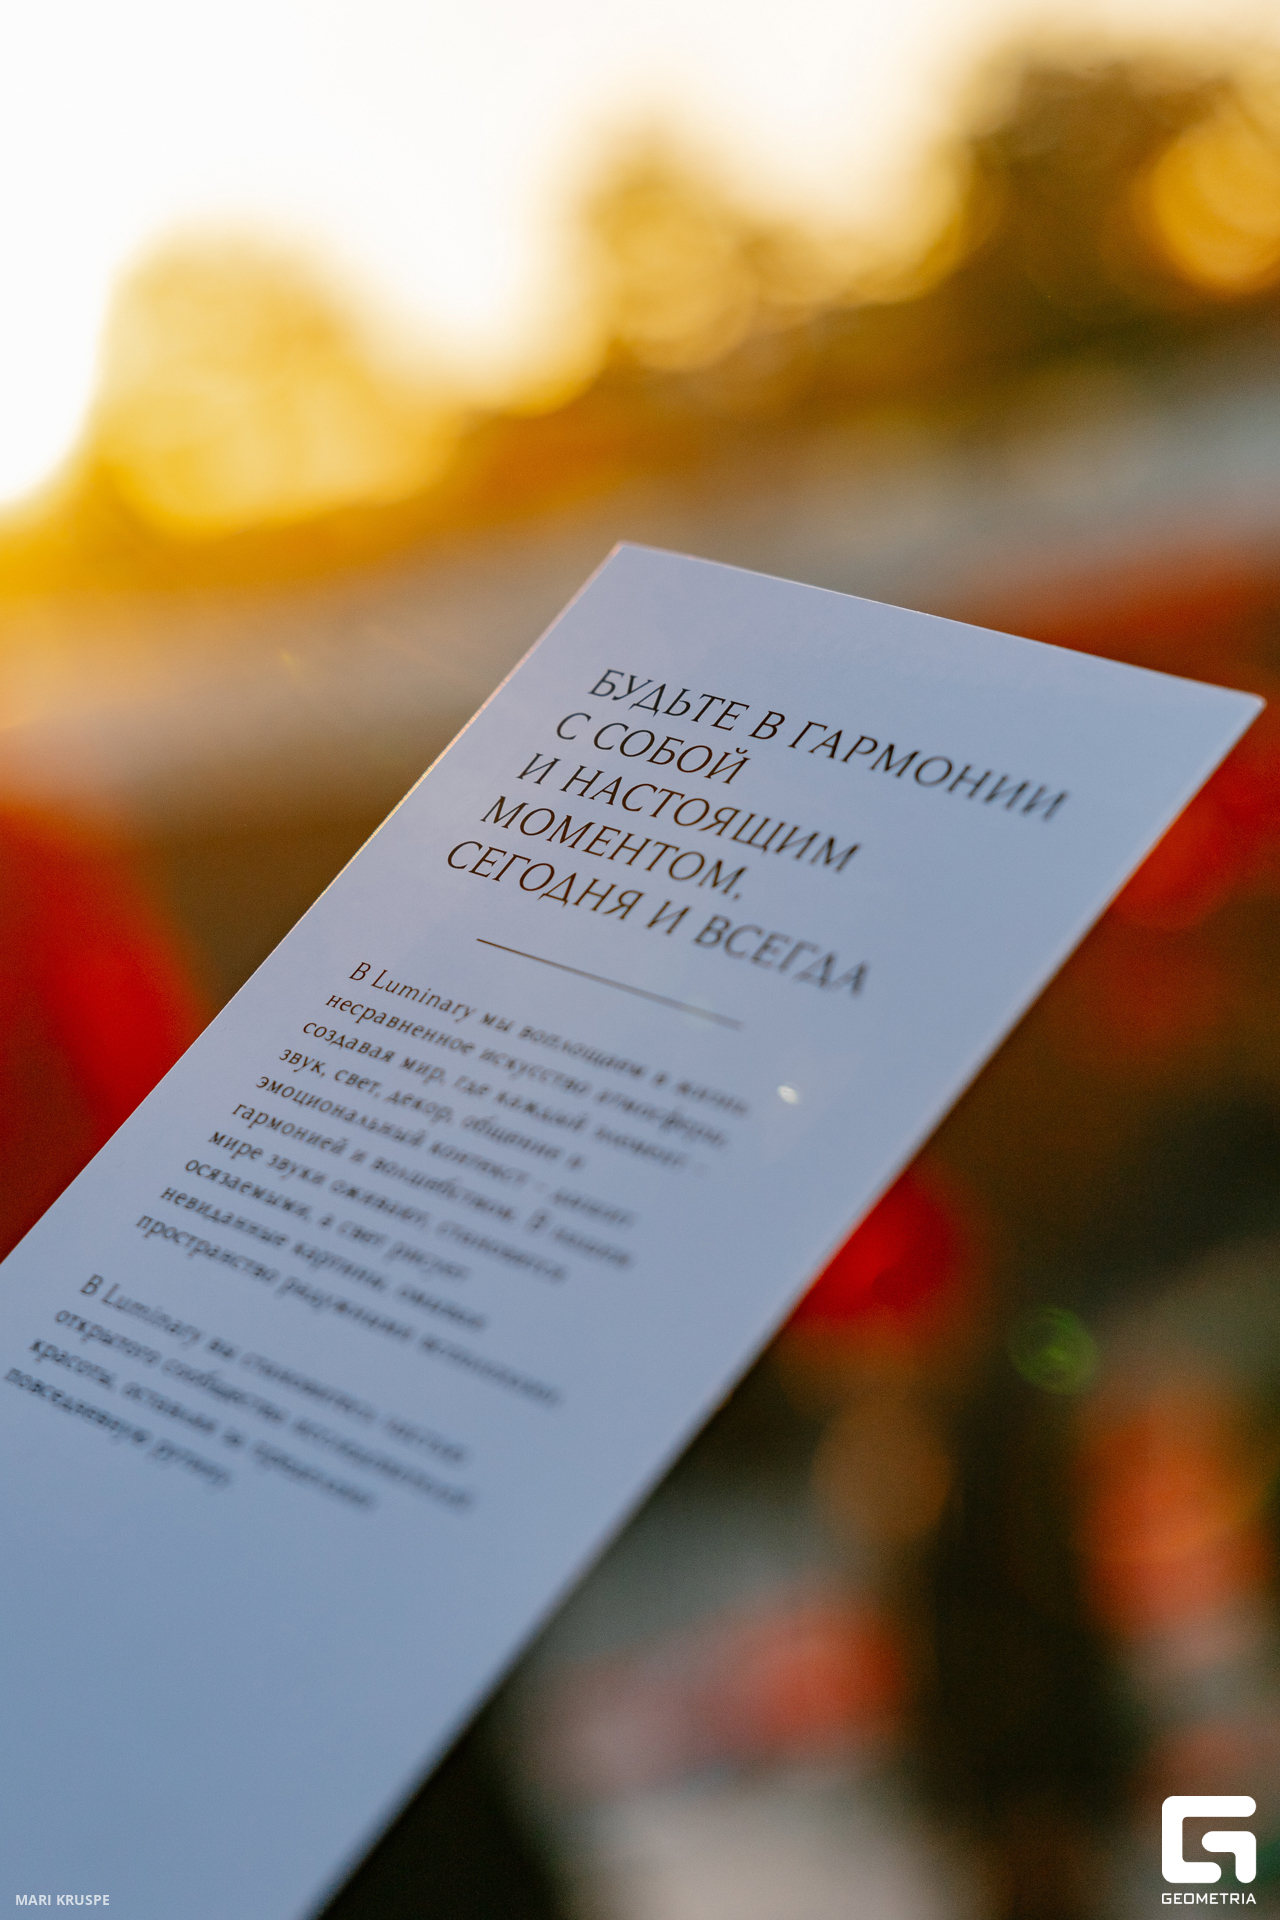 БУДЬТЕ В ГАРМОНИИ
С СОБОЙ
И НАСТОЯЩИМ
МОМЕНТОМ,
СЕГОДНЯ И ВСЕГДА
В Luminary мы воплощаем в жизнь
несравненное искусство атмосферы,
создавая мир, где каждый момент –
звук, свет, декор, общение и
эмоциональный контекст –
гармонией и волшебством. В нашем
мире звуки оживают, становятся
осязаемыми, а свет рисует
невиданные картины,
пространство
В Luminary вы становитесь частью
открытого сообщества
красоты, оставляя за
повседневную рутину.
MARI KRUSPE
GEOMETRIA